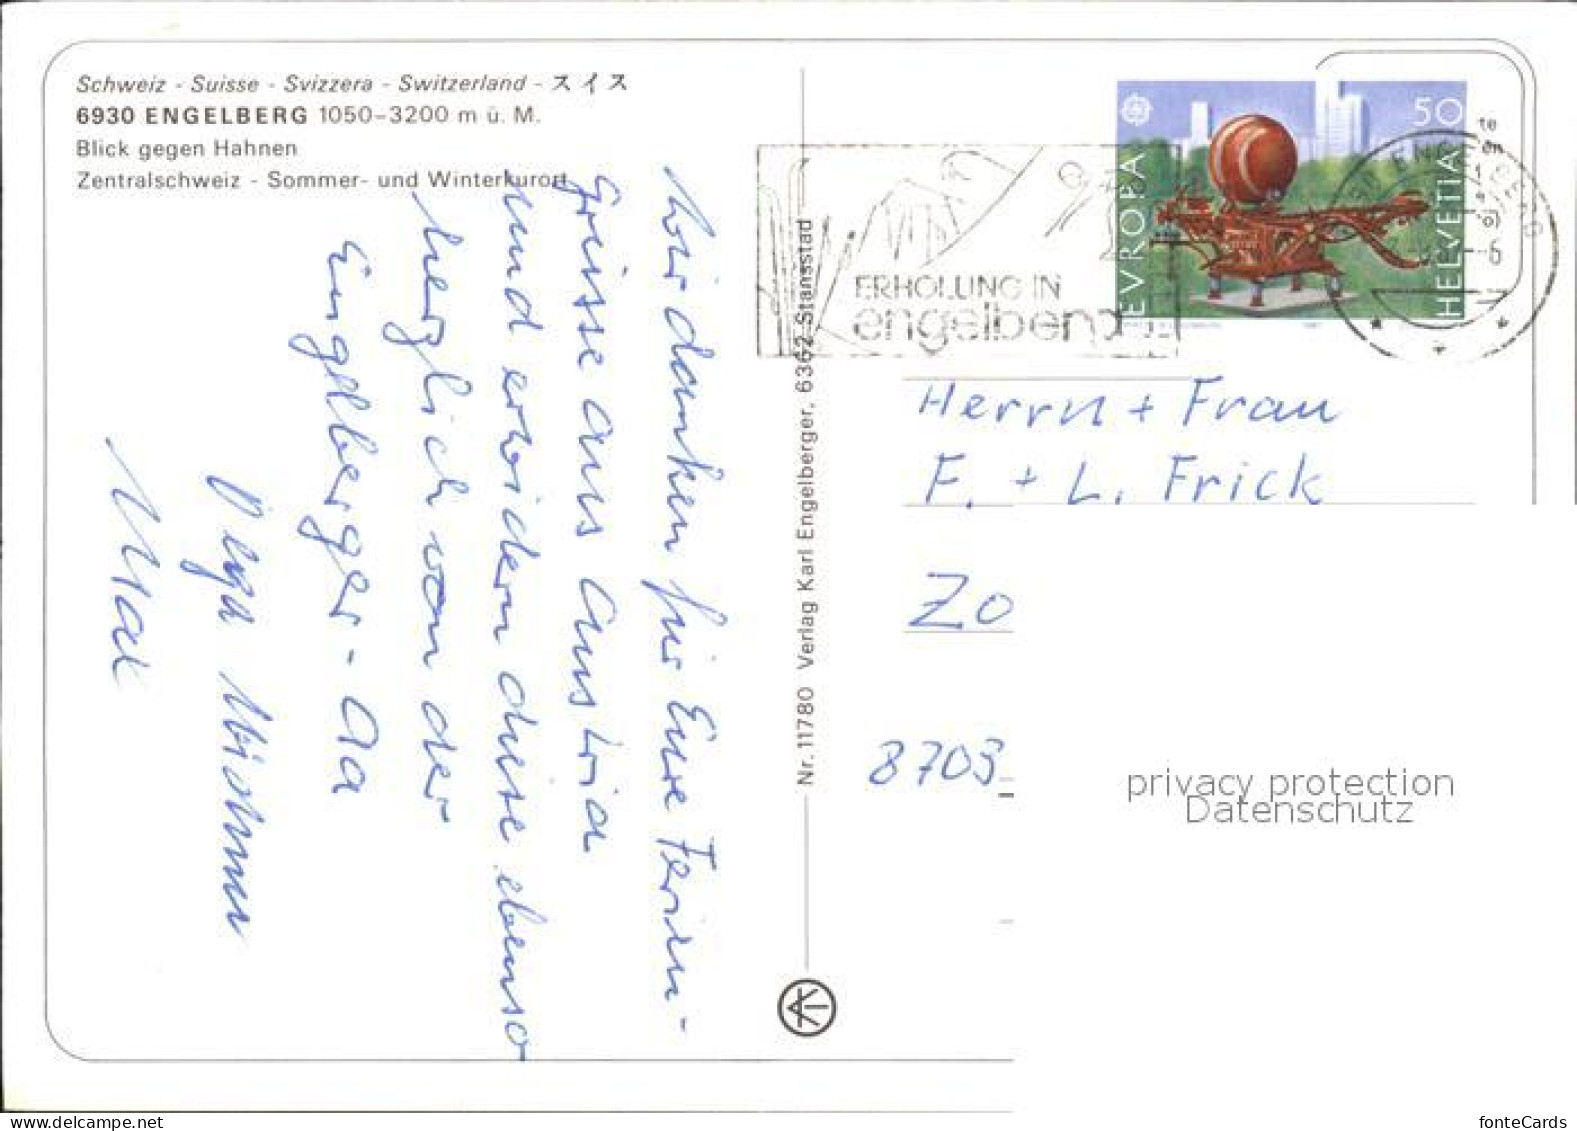 Schweiz - Suisse - Svizzera - Switzerland - スイス
6930 ENGELBERG 1050–3200 m ü. M.
Blick gegen Hahnen
Zentralschweiz - Sommer- und Winterkurort
Wir danken für Eure Ferien-
grüsse aus Austria
und erwidern diese ebenso
herzlich von der
Engelberger-Aa
Nr. 11780 Verlag Karl Engelberger, 6362 Stansstad
EVROPA
50
HELVETIA
ERHOLUNG IN
engelberg
ENGELBERG
Herrn + Frau
F. + L. Frick
Zo
8703
privacy protection
Datenschutz
www.ansichtskarten-center.de
fonteCards